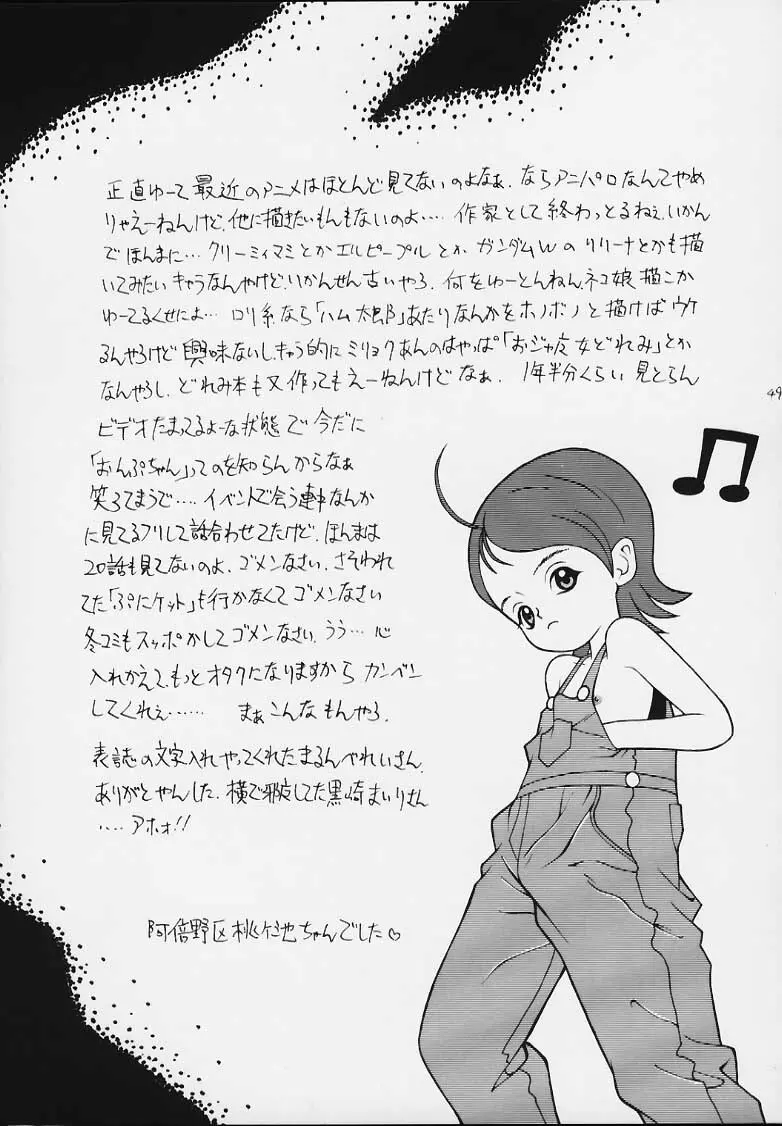 正直ゆーて最近のアニメはほとんど見てないのよなぁ、ならアニパロなんてやめ
りゃえーねんけど、他に描きたいもんもないのよ…. 作家として終わっとるねぇ、いかん
でほんまに… クリーミィマミとかエルピープルとか ガンダムWのリリーナとかも描
いてみたいキャラなんやけど、いかんせん古いやろ、何をゆーとんねん、ネコ娘描こか
ゆーてるくせによ… ロリ系なら「ハム太郎」あたりなんかをホノボノと描けばウケ
るんやろけど興味ないし、きゃら的にミリョクあんのはやっぱ「おジャ魔女どれみ」とか
なんやろし、どれみ本も又作ってもえーねんけどなぁ、1年半分くらい見とらん
49
ビデオたまってるよーな状態で今だに
「おんぷちゃん」ってのを知らんからなぁ
笑ろてまうで…. イベントで会う連中なんか
に見てるフリして話合わせてたけど、ほんまは
20話も見てないのよ、ゴメンなさい、さそわれ
てた「ぷにケット」も行かなくてゴメンなさい
冬コミもスッポかしてゴメンなさい、うう… 心
入れかえて、もっとオタクになりますから カンベン
してくれぇ…… まぁこんなもんやろ、
表誌の文字入れやってくれたまるんべれいさん、
ありがとやんした、横で邪魔してた黒崎まいりさん
….アホォ!!
阿倍野区桃ヶ池ちゃんでした♡